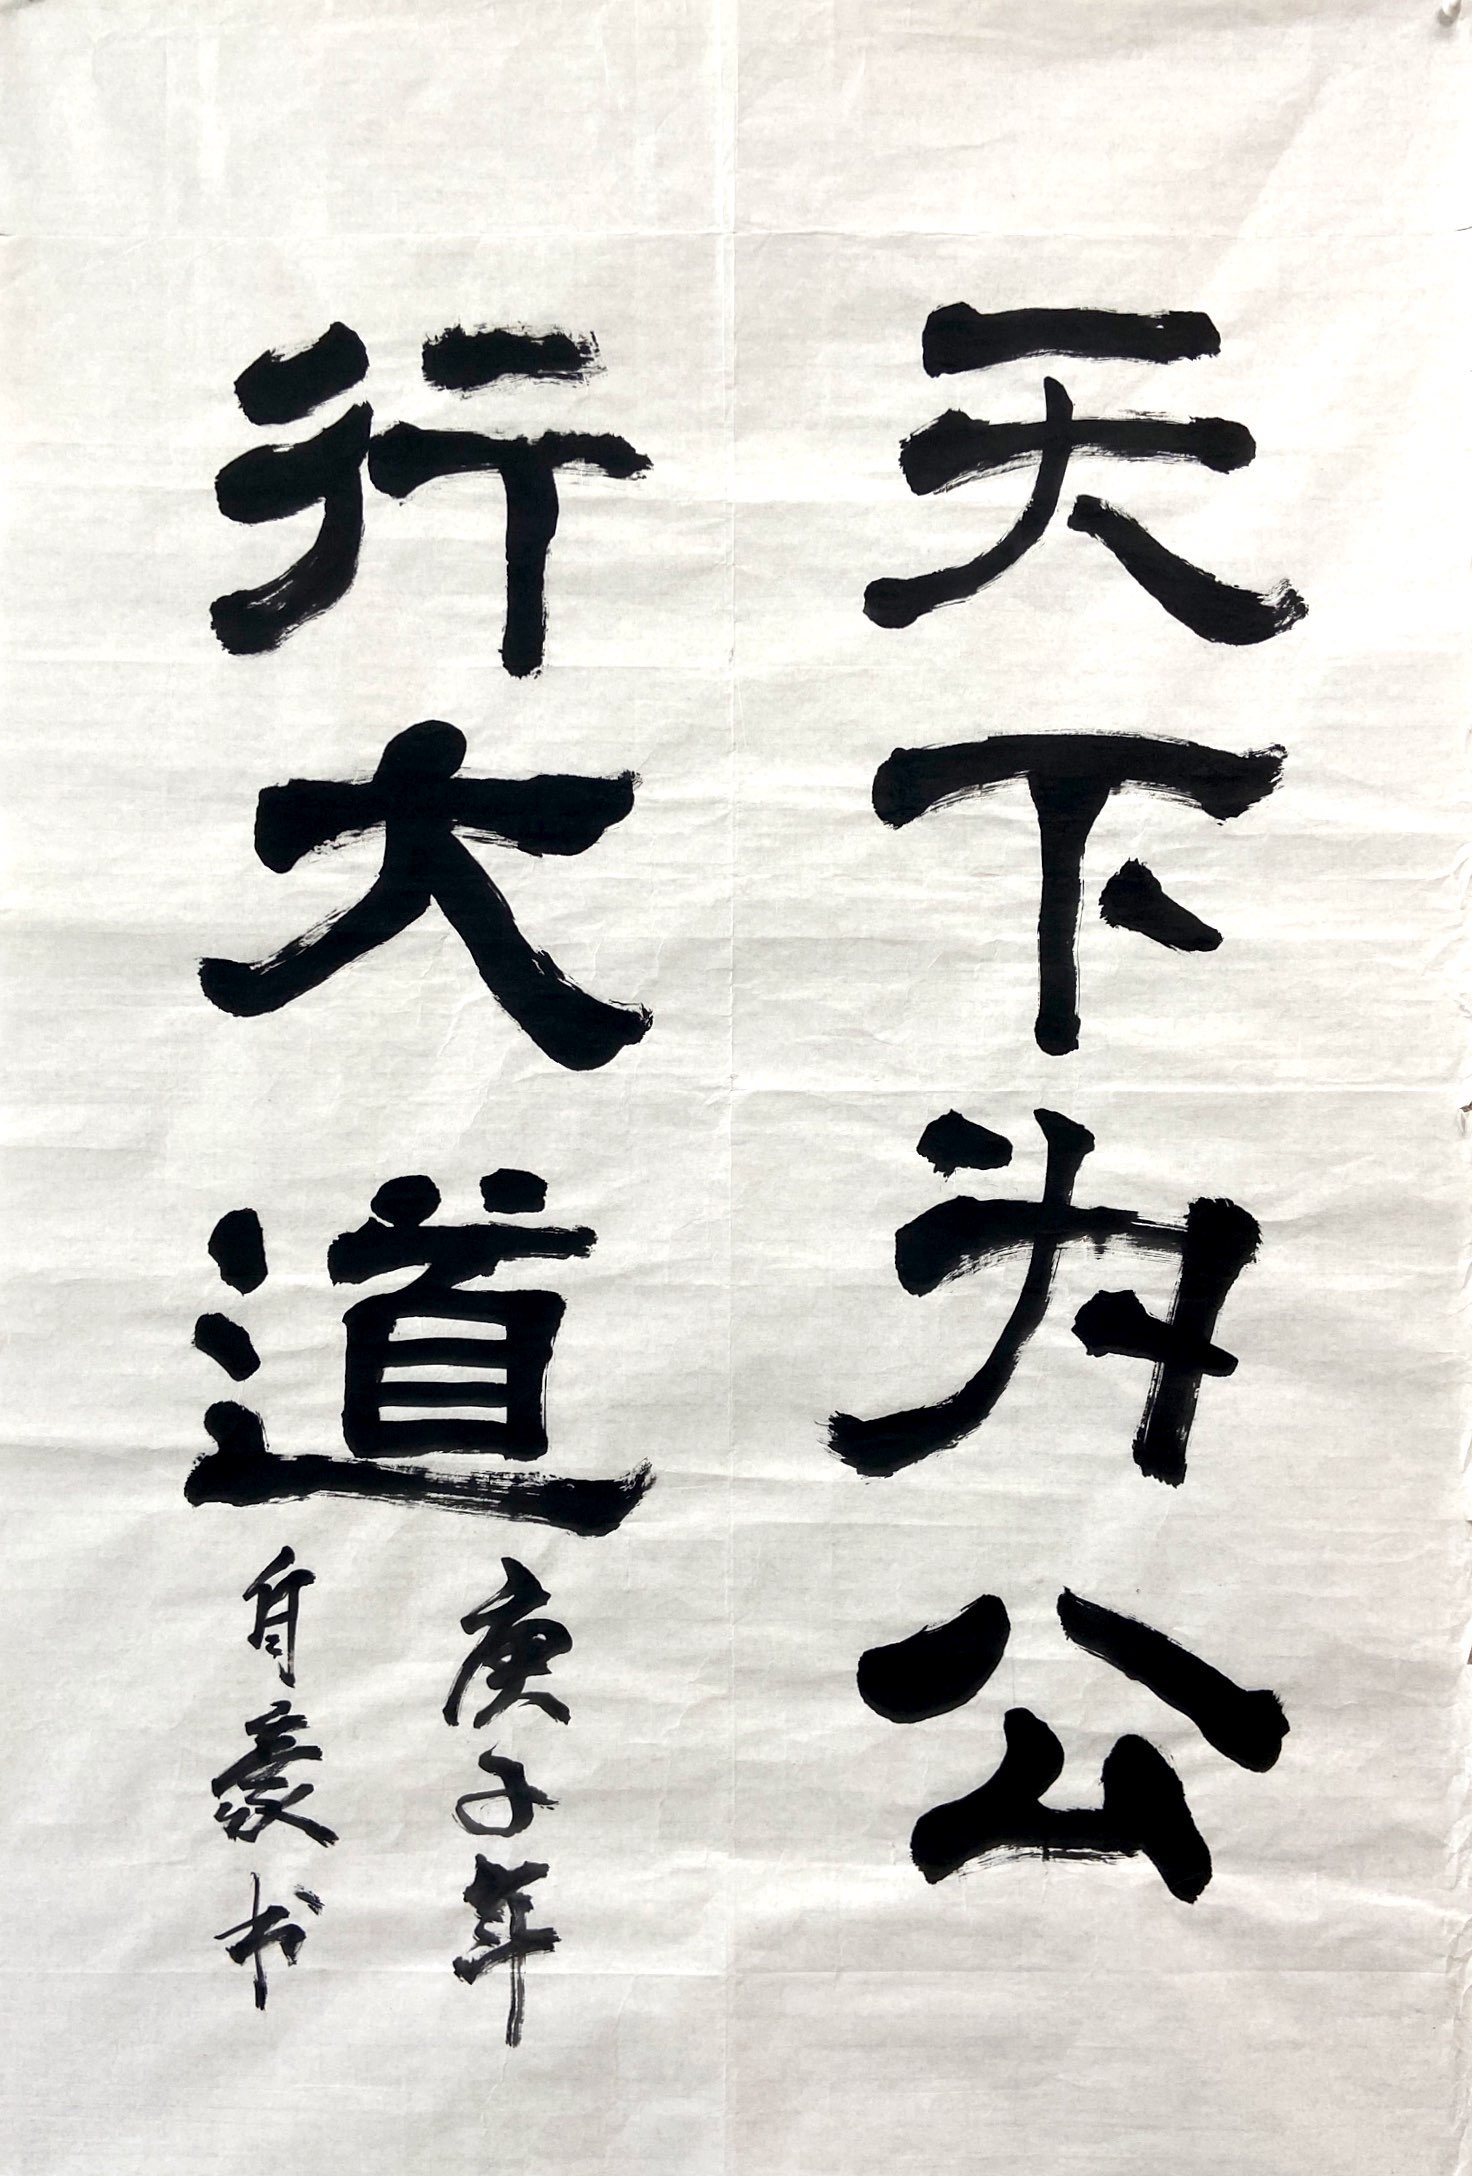 天下为公
行大道
庚子年
自豪书